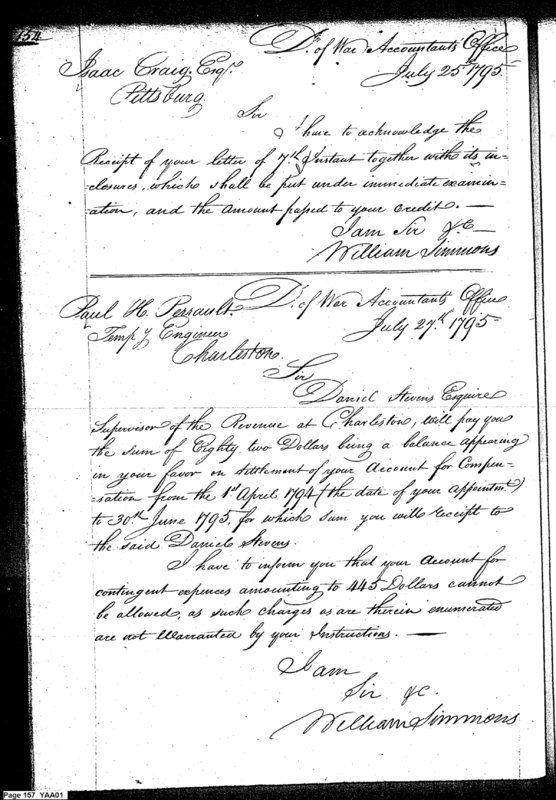 154
Dt. of War Accountants Office
July 25 1795
Isaac Craig Esqr.
Pittsburg
Sir
I have to acknowledge the
Receipt of your letter of 7th Instant together with its in-
-closures, which shall be put under immediate examin-
-ation, and the amount passed to your credit. —
I am Sir &c —
William Simmons
Dt. of War Accountants Office
July 27th 1795
Paul H. Perrault
Tempy Engineer
Charleston.
Sir
Daniel Stevens Esquire
Supervisor of the Revenue at Charleston, will pay you
the sum of Eighty two Dollars being a balance appearing
in your favor on settlement of your Account for Compen-
-sation from the 1st April 1794 (the date of your appointmt.)
to 30th June 1795, for which sum you will receipt to
the said Daniel Stevens.
I have to inform you that your account for
contingent expences amounting to 445 Dollars cannot
be allowed, as such charges as are therein enumerated
are not Warranted by your Instructions. —
I am
Sir &c.
William Simmons
Page 157 YAA01